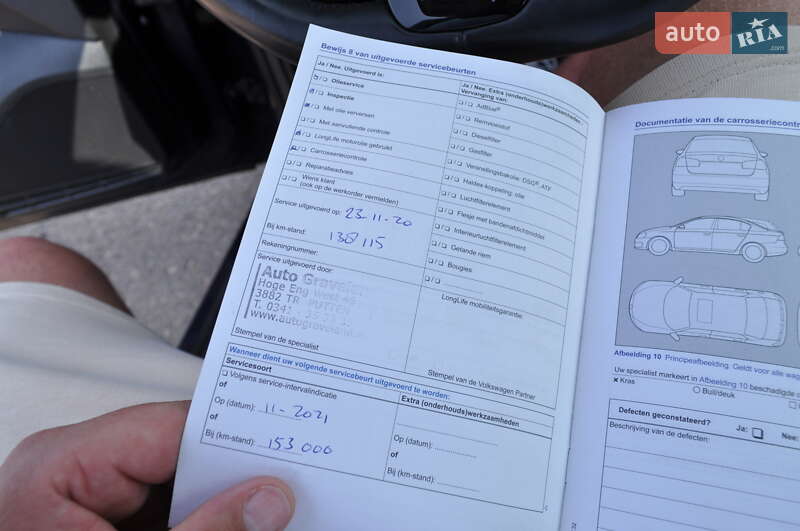 auto RIA .com
Bewijs 8 van uitgevoerde servicebeurten
Ja / Nee. Uitgevoerd is:
Olieservice
Inspectie
Met olie verversen
Met aanvullende controle
LongLife motorolie gebruikt
Carrosseriecontrole
Reparatieadvies
Wens klant
(ook op de werkorder vermelden)
Service uitgevoerd op: 23-11-20
Bij km-stand: 138 115
Rekeningnummer:
Service uitgevoerd door:
Hoge Eng West 48
3882 TR PUTTEN
T. 0341
Stempel van de specialist
Ja / Nee. Extra (onderhouds)werkzaamheden.
Vervanging van:
AdBlue®
Remvloeistof
Dieselfilter
Gasfilter
Versnellingsbakolie: DSG®, ATF
Haldex-koppeling: olie
Luchtfilterelement
Flesje met bandenafdichtmiddel
Interieurluchtfilterelement
Getande riem
Bougies
LongLife mobiliteitsgarantie.
Stempel van de Volkswagen Partner
Wanneer dient uw volgende servicebeurt uitgevoerd te worden:
Servicesoort
Volgens service-intervalindicatie
of
Op (datum): 11-2021
of
Bij (km-stand): 153 000
Extra (onderhouds)werkzaamheden
Op (datum):
of
Bij (km-stand):
Documentatie van de carrosseriecontr
Afbeelding 10 Principeafbeelding. Geldt voor alle wag
Uw specialist markeert in Afbeelding 10 beschadigde
× Kras
Buil/deuk
Defecten geconstateerd?
Ja:
Nee:
Beschrijving van de defecten: